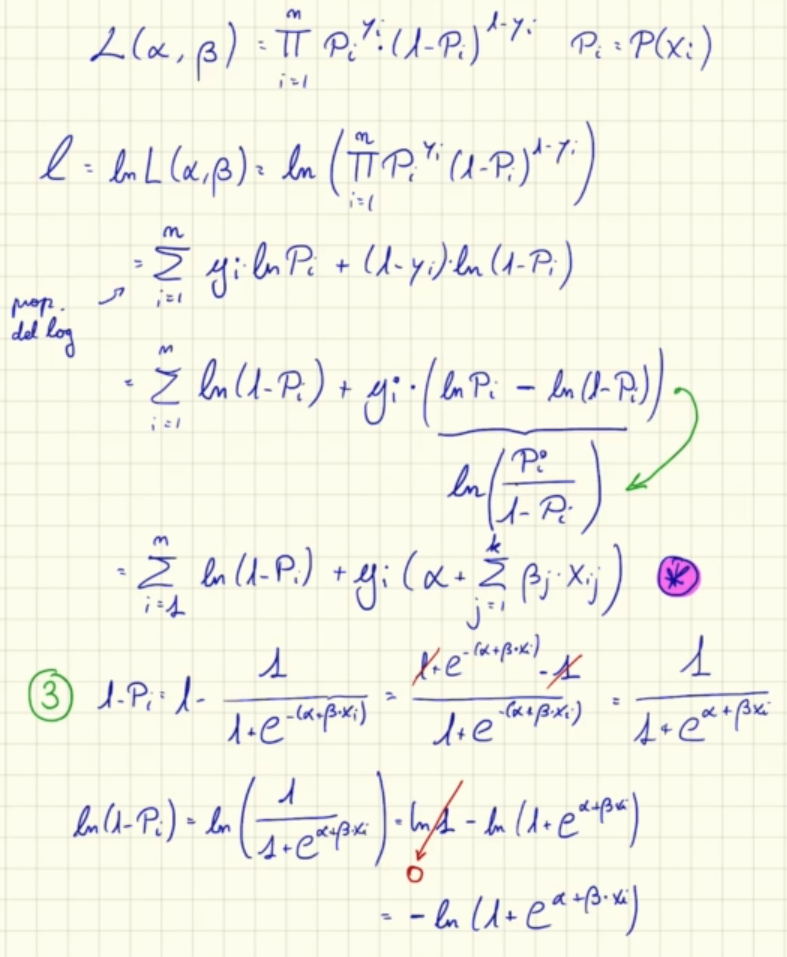 L(α, β) = ∏_{i=1}^{n} P_i^{y_i} · (1-P_i)^{1-y_i}   P_i = P(x_i)
l = ln L(α,β) = ln (∏_{i=1}^{n} P_i^{y_i} (1-P_i)^{1-y_i})
= ∑_{i=1}^{n} y_i · ln P_i + (1-y_i) · ln (1-P_i)
prop.
del log
= ∑_{i=1}^{n} ln (1-P_i) + y_i · (ln P_i - ln (1-P_i))
ln (P_i / (1-P_i))
= ∑_{i=1}^{n} ln (1-P_i) + y_i (α + ∑_{j=1}^{k} β_j · x_{ij}) *
3 1-P_i = 1 - 1 / (1+e^{-(α+β·x_i)}) = (1+e^{-(α+β·x_i)} - 1) / (1+e^{-(α+β·x_i)}) = 1 / (1+e^{α+βx_i})
ln (1-P_i) = ln (1 / (1+e^{α+β·x_i})) = ln 1 - ln (1+e^{α+βx_i})
0
= - ln (1+e^{α+β·x_i})